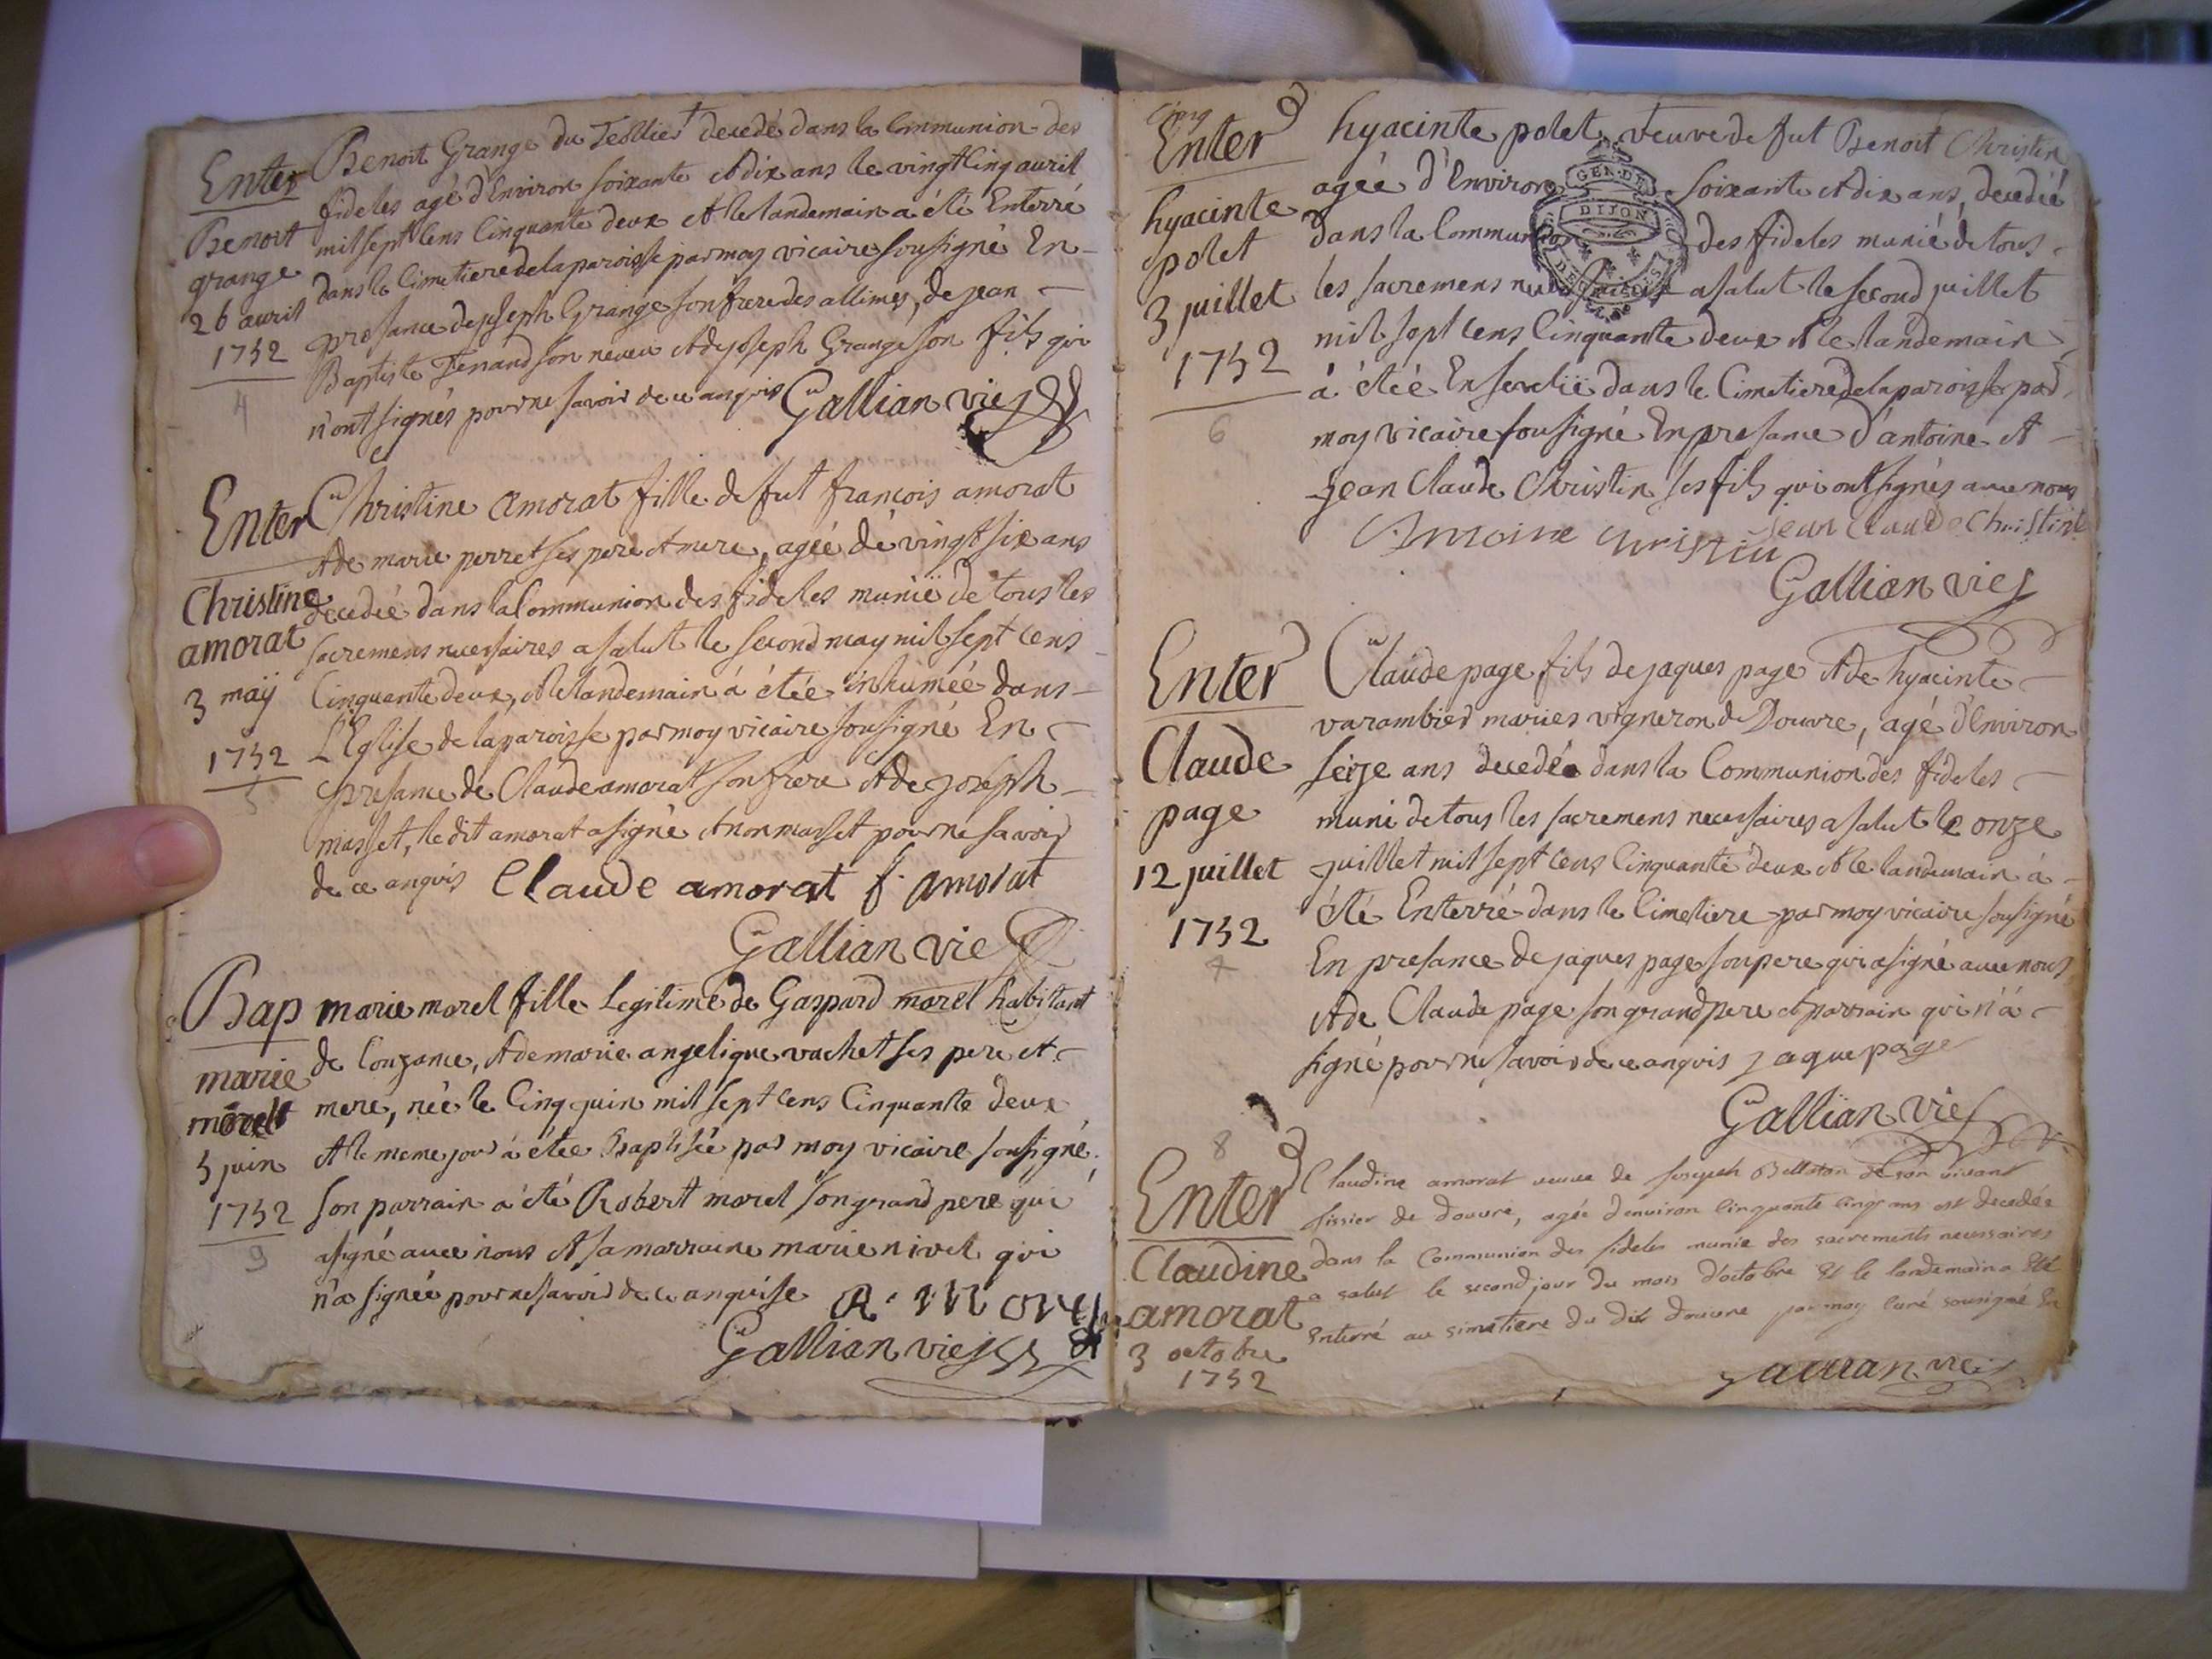 Enter
Benoit
grange
26 avril
1752
4
Benoit Grange du Tellier decedé dans la Communion des
fideles agé d'Environ soixante et dix ans le vingt Cinq avril
mil sept Cens Cinquante deux et le landemain a été Enterré
dans le Cimetiere de la paroisse par moy vicaire sousigné En
presance de joseph Grange son frere des allimes, de jean
Baptiste Tenand son neveu et de joseph Grange son fils qui
n'ont signés pour ne savoir de ce anquis Gallian vic
Enter
Christine
amorat
3 maÿ
1752
5
Christine amorat fille de fut francois amorat
et de marie perret ses pere et mere, agéé dé vingt six ans
decedéé dans la Communion des fideles munië de tous les
sacremens necessaires a salut le second may mil sept Cens
Cinquante deux, et le landemain á étée inhuméé dans
L'Eglise de la paroisse par moy vicaire sousigné En
presance de Claude amorat son frere et de joseph
masset, le dit amorat a signé et non masset pour ne savoir
de ce anquis Claude amorat f. amorat
Gallian vic
Bap
marie
morel
5 juin
1752
9
marie morel fille Legitime de Gaspard morel habitant
de Conzance, et de marie angelique vachet ses pere et
mere, néé le Cinq juin mil sept Cens Cinquante deux
et le meme jour á étée Baptiséé par moy vicaire sousigné,
son parrain a été Robert morel son grand pere qui
a signé avec nous et sa marraine marie nivel qui
n'a signéé pour ne savoir de ce anquise R. morel
Gallian vic
Cinq
Enter
hyacinte
polet
3 juillet
1752
6
hyacinte polet veuve de fut Benoit Christin
agéé d'Environ soixante et dix ans, decedéé
dans la Communion des fideles munié de tous
les sacremens necessaires a salut le second juillet
mil sept Cens Cinquante deux et le landemain
á étéé Ensevelië dans le Cimetiere de la paroisse par
moy vicaire sousigné En presance d'antoine et
jean Claude Christin ses fils qui ont signés avec nous
Antoine Christin jean Claude Christin
Gallian vic
GEN. DE
DIJON
Enter
Claude
page
12 juillet
1752
7
Claude page fils de jaques page et de hyacinte
varambier mariés vigneron de Douvre, agé d'Environ
seize ans decedé dans la Communion des fideles
muni de tous les sacremens necessaires a salut le onze
juillet mil sept Cens Cinquante deux et le landemain á
été Enterré dans le Cimetiere par moy vicaire sousigné
En presance de jaques page son pere qui a signé avec nous,
et de Claude page son grand pere et parrain qui n'á
signé pour ne savoir de ce anquis jaque page
Gallian vic
8
Enter
Claudine
amorat
3 octobre
1752
Claudine amorat veuve de Joseph Billiston de son vivant
tissier de douvre, agéé denviron Cinquante Cinq ans est decedéé
dans la Communion des fideles munie des sacrements necessaires
a salut le second jour du mois d'octobre Et le landemain a Eté
Enterré au simetiere du dit douvre par moy Curé sousigné En
gallian vic